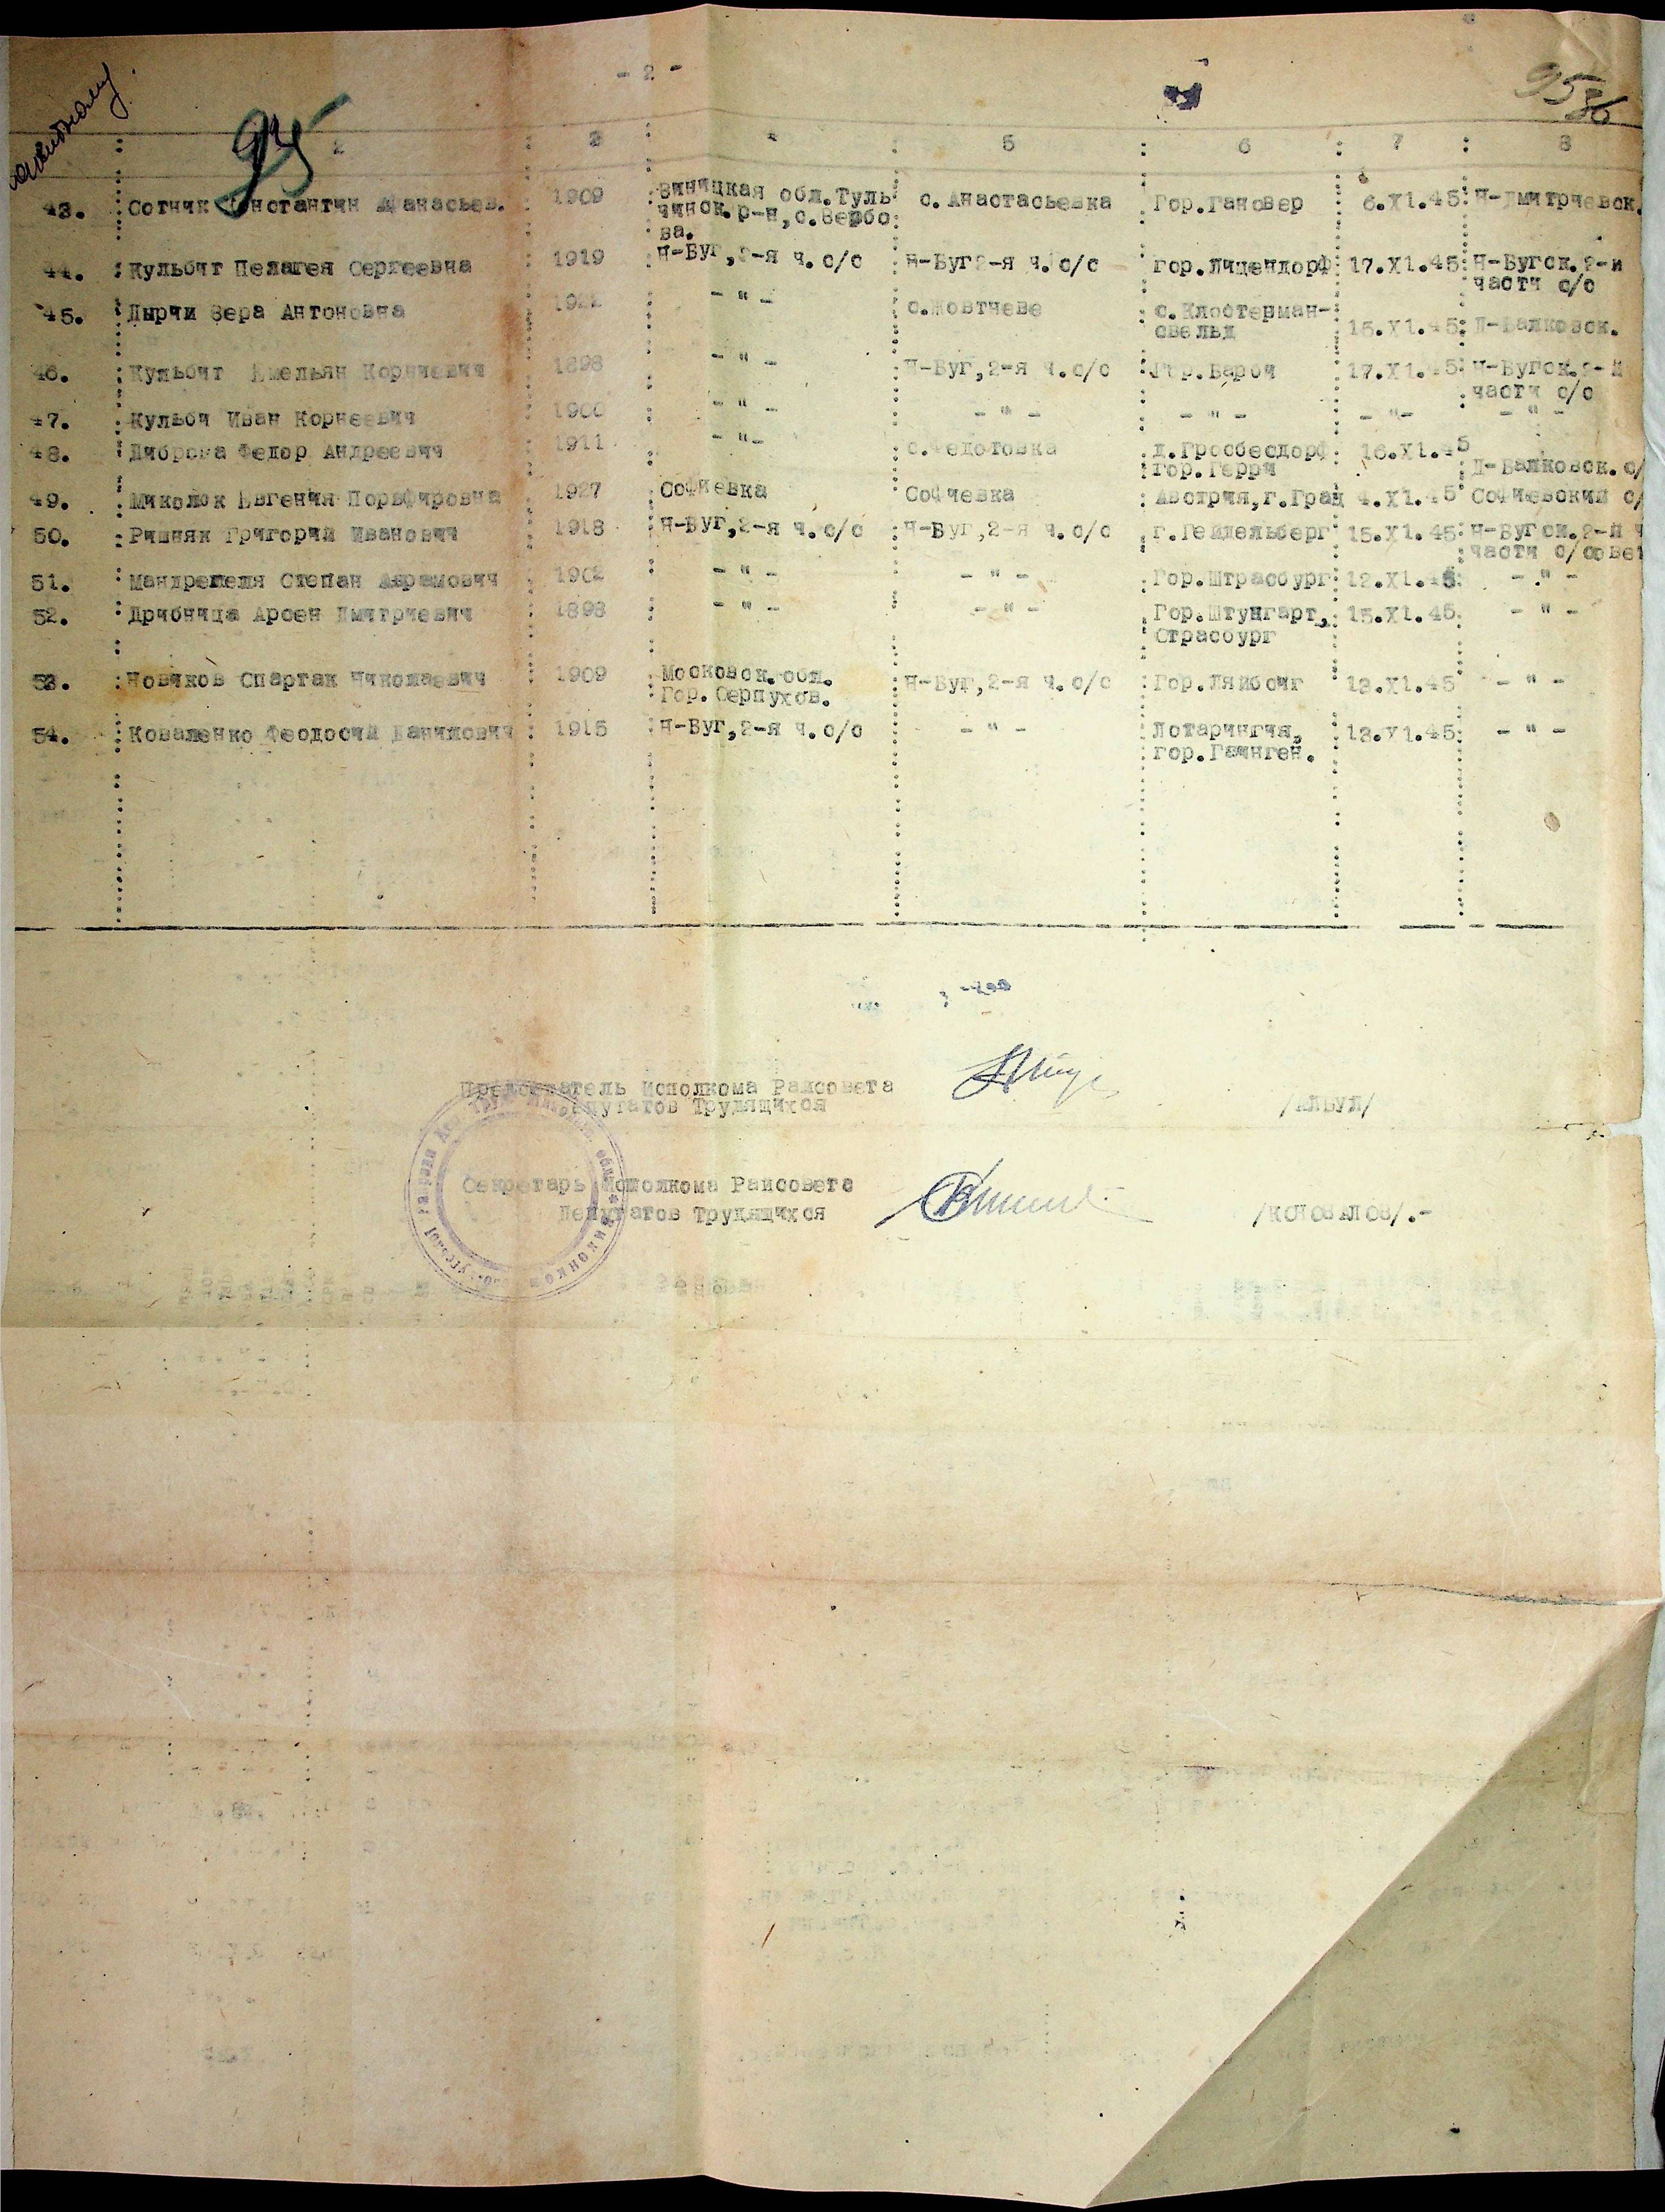 - 2 -
95
95
36
2 3 4 5 6 7 8
43. Сотник Константин Афанасьев. 1909 Виницкая обл.Туль с.Анастасьевка Гор.Гановер 6.X1.45 Н-Дмитриевск.
чинск.р-н,с.Вербо
ва.
44. Кульбит Пелагея Сергеевна 1919 Н-Буг,2-я ч.с/с Н-Буг2-я ч.с/с гор.Лицендорф 17.X1.45 Н-Бугск.2-й
части с/с
45. Дырчи Вера Антоновна - " - с.Жовтнево с.Клостерман-
свельд 16.X1.45 Д-Балковск.
46. Кульбит Емельян Корниевич 1898 - " - Н-Буг,2-я ч.с/с Гор.Бароч 17.X1.45 Н-Бугск.2-й
части с/с
47. Кульбич Иван Корнеевич 1900 - " - - " - - " - - " - - " -
48. Диброва Федор Андреевич 1911 - " - с.Федотовка д.Гросбесдорф 16.X1.45
гор.Герри Д-Балковск.с/
49. Миколюк Евгения Порфировна 1927 Софиевка Софиевка Австрия,г.Грац 4.X1.45 Софиевский с/
50. Ришняк Григорий Иванович 1918 Н-Буг,2-я ч.с/с Н-Буг,2-я ч.с/с г.Гейдельберг 15.X1.45 Н-Бугск.2-й ч
части с/совет
51. Мандрепеля Степан Аврамович 1902 - " - - " - Гор.Штрасбург 12.X1.45 - " -
52. Дрибница Арсен Дмитриевич 1898 - " - - " - Гор.Штунгарт, 15.X1.45 - " -
Страсбург
53. Новиков Спартак Николаевич 1909 Московск.обл. Н-Буг,2-я ч.с/с Гор.Ляйбсиг 13.X1.45 - " -
Гор.Серпухов.
54. Коваленко Феодосий Данилович 1915 Н-Буг,2-я ч.с/с - " - Лотарингия, 13.X1.45 - " -
гор.Гаинген.
Председатель Исполкома Райсовета
Депутатов Трудящихся /АЛБУЛ/
Секретарь Исполкома Райсовета
Депутатов Трудящихся /КОНОВАЛОВ/.-